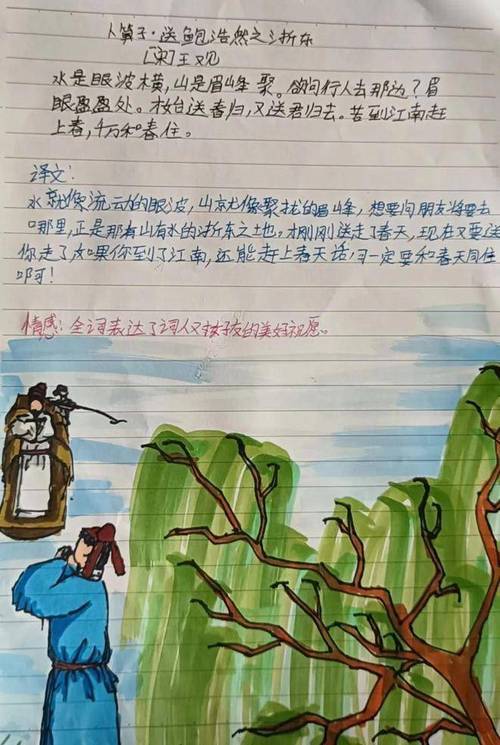 卜算子·送鲍浩然之浙东
[宋]王观
水是眼波横,山是眉峰聚。欲问行人去那边?眉
眼盈盈处。才始送春归,又送君归去。若到江南赶
上春,千万和春住。
译文:
水就像流动的眼波,山就像聚拢的眉峰,想要问朋友将要去
哪里,正是那有山有水的浙东之地。才刚刚送走了春天,现在又要送
你走了,如果你到了江南,还能赶上春天话,可一定要和春天同住
啊!
情感:全词表达了词人对朋友的美好祝愿。